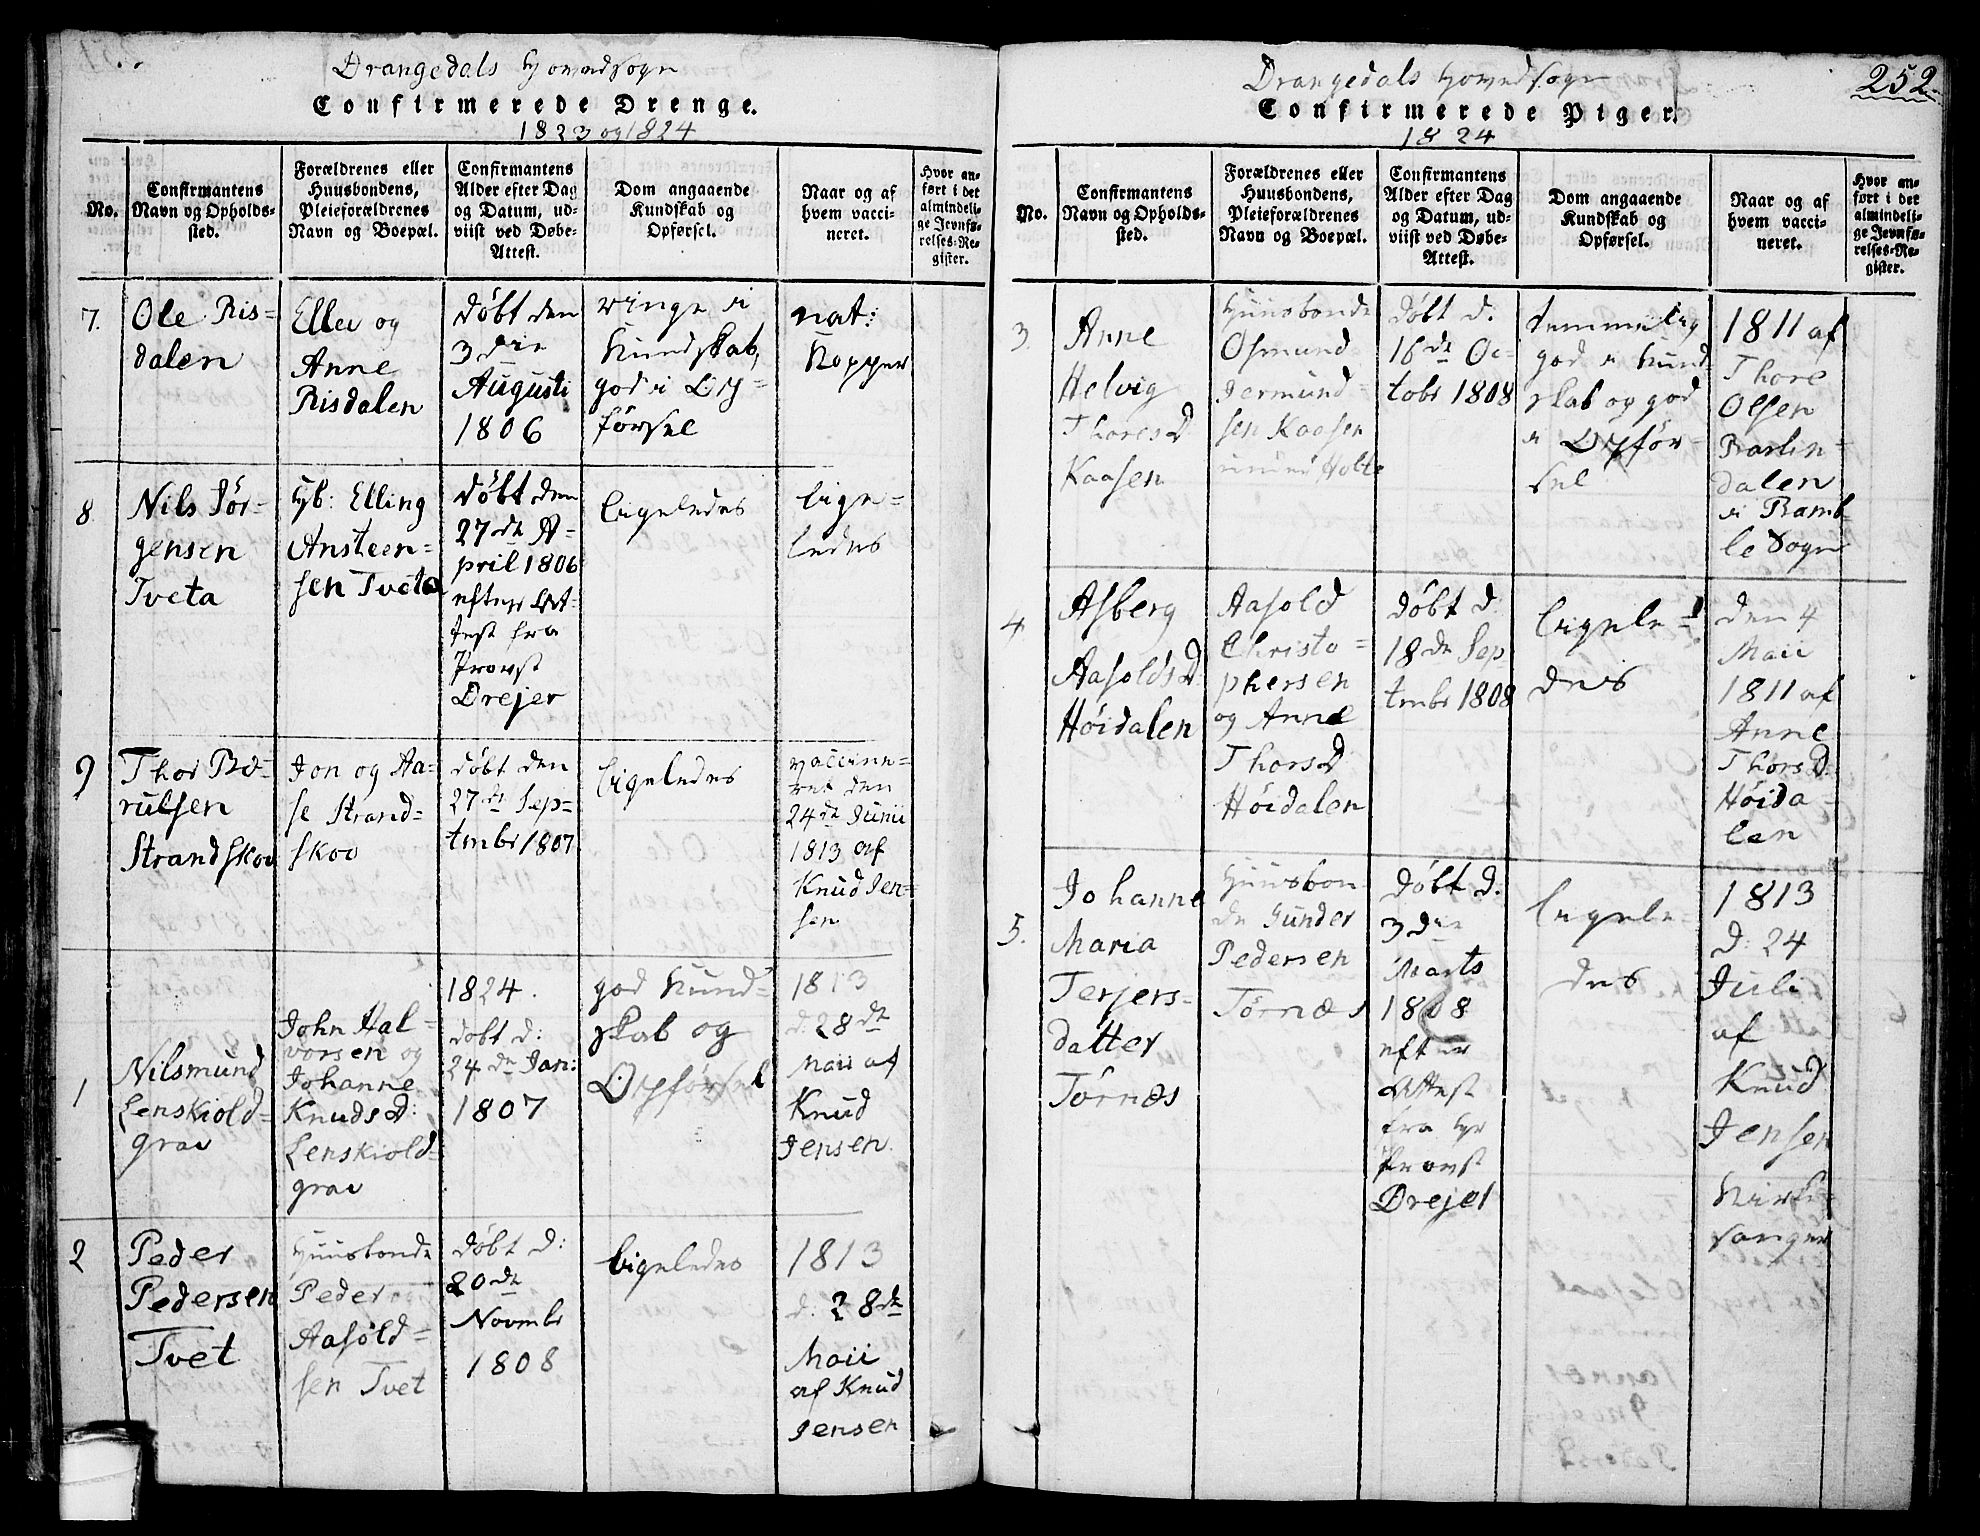 Drangedals Hovedsogn
Confirmerede Drenge.
1823 og 1824
No.
Confirmantens
Navn og Opholds-
sted.
Forældrenes eller
Huusbondens,
Pleieforældrenes
Navn og Boepæl.
Confirmantens
Alder efter Dag
og Datum, ud-
viist ved Døbe-
Attest.
Dom angaaende
Kundskab og
Opførsel.
Naar og af
hvem vacci-
neret.
Hvor an-
ført i det
almindeli-
ge Jevnfø-
relses-Re-
gister.
7.
Ole Ris=
dalen
Ellev og
Anne
Risdalen
døbt den
3die
Augusti
1806
ringe i
Kundskab,
god i Op=
førsel
nat:
Kopper
8
Nils Jør=
gensen
Tveta
Hb: Elling
Ansteen=
sen Tveta
døbt den
27de A=
pril 1806
efter At=
test fra
Provst
Drejer
ligeledes
lige=
ledes
9
Thor Bo=
rulsen
Strandskov
Jon og Aa=
se Strand=
skov
døbt den
27de Sep=
tembr 1807
ligeledes
vaccine=
ret den
24de Junii
1813 af
Knud Jen=
sen
1
Nilsmund
Lenskiold=
grav
John Hal=
vorsen og
Johanne
KnudsD:
Lenskiold=
grav
1824.
døbt d:
24de Jan:
1807
god Kund=
skab og
Opførsel
1813
d. 28de
Maii af
Knud
Jensen.
2
Peder
Pedersen
Tvet
Huusbonde
Peder
Aasold=
sen Tvet
døbt d:
20de
Novembr
1808
ligeledes
1813
d. 28de
Maii
af Knud
Jensen
252.
Drangedals Hovedsogn
Confirmerede Piger.
1824
No.
Confirmantens
Navn og Opholds-
sted.
Forældrenes eller
Huusbondens,
Pleieforældrenes
Navn og Boepæl.
Confirmantens
Alder efter Dag
og Datum, ud-
viist ved Døbe-
Attest.
Dom angaaende
Kundskab og
Opførsel.
Naar og af
hvem vacci-
neret.
Hvor an-
ført i det
almindeli-
ge Jevnfø-
relses-Re-
gister.
3
Anne
Helvig
ThoresD
Kaasen
Huusbonde
Osmund
Jermund=
sen Kaasen
under Holte
døbt d.
16de Oc=
tobr 1808
temmelig
god i Kund
skab og god
i Opfør=
sel
1811 af
Thore
Olsen
dalen
i Bamb=
le Sogn
4
Asberg
AasoldsD
Høidalen
Aasold
Christo=
phersen
og Anne
ThorsD
Høidalen
døbt d
18de Sep
tembr 1808
ligele=
des
den 4
Maii
1811 af
Anne
ThorsD:
Høida=
len
5.
Johanne
Maria
Terjers=
datter
Tørnæs
Huusbon=
de Gunder
Pedersen
Tørnæs
døbt d.
3die
Marts
1808
efter
Attest
fra Hr
Provst
Drejer
ligele=
des
1813
d: 24
Juli
af
Knud
Jensen
Kirke
sanger